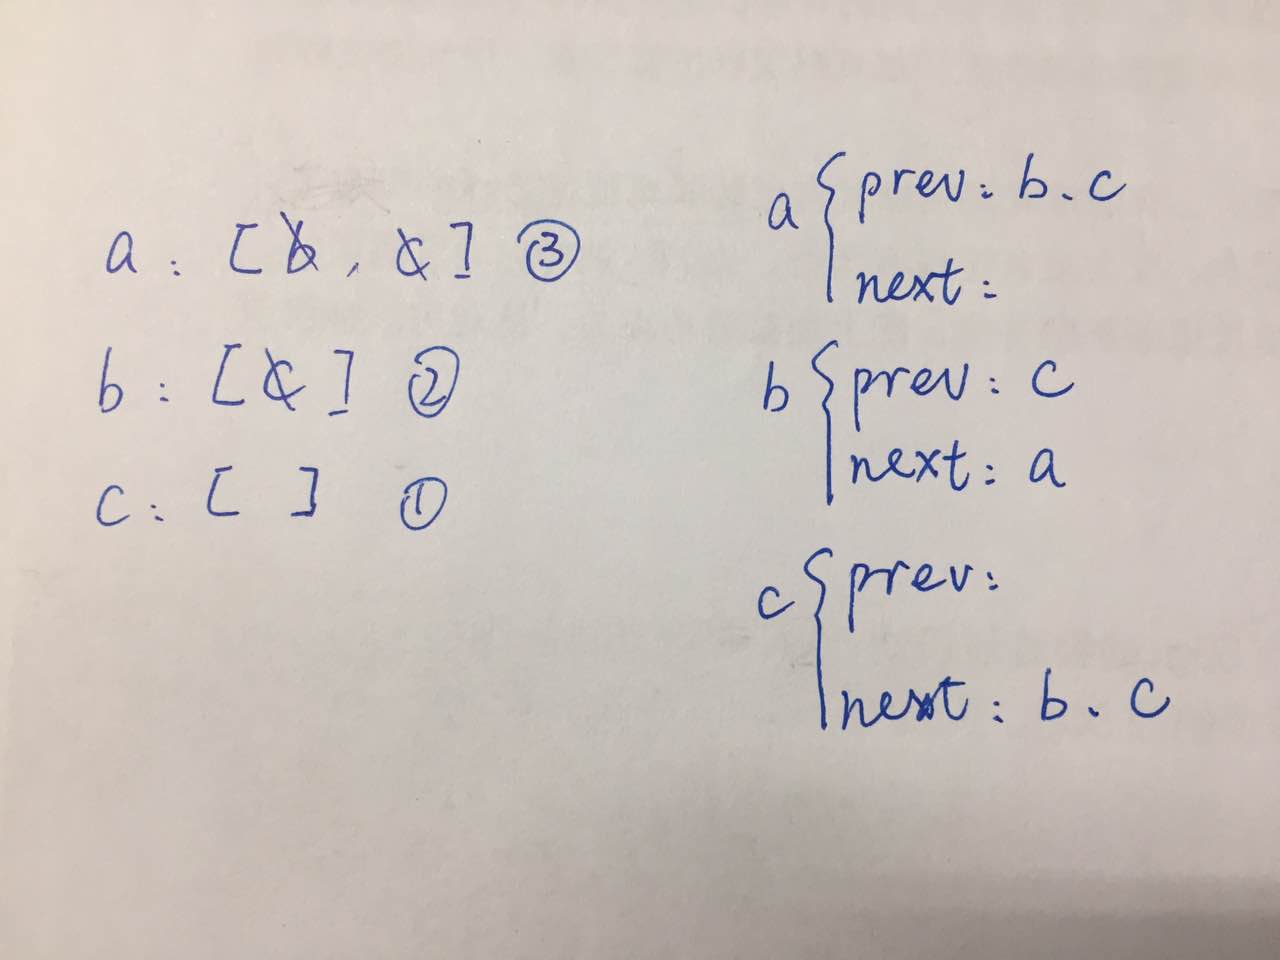 a : [b, c] ③
b : [c] ②
c : [ ] ①
a { prev : b. c
next :
b { prev : c
next : a
c { prev :
next : b. c